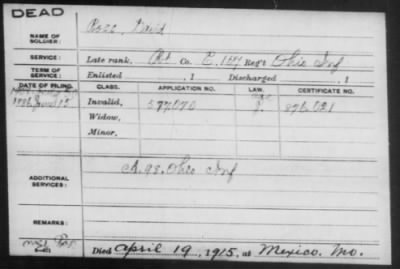 DEAD
NAME OF SOLDIER: David
SERVICE: Late rank, Co. E, 157 Reg't Ohio Inf
TERM OF SERVICE: Enlisted , 1 Discharged , 1
DATE OF FILING. CLASS. APPLICATION NO. LAW. CERTIFICATE NO.
Invalid, 597070 876,031
Widow,
Minor.
ADDITIONAL SERVICES: A. 98. Ohio Inf
REMARKS:
Died April 19, 1915, at Mexico. Mo.